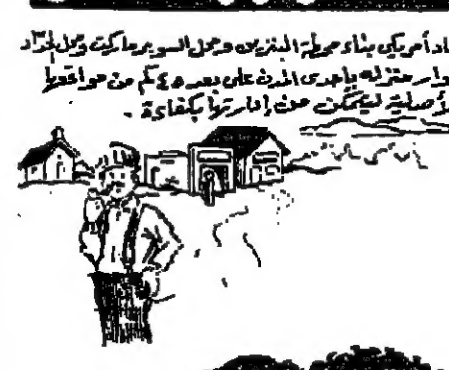 اد أمريكي بناء محطة البنزين ومحل السوبر ماركت ومحل الحداد
وار منزله بإحدى المدن على بعد ٤٥ كم من مواقعها
لأصلية ليتمكن من إدارتها بكفاءة .